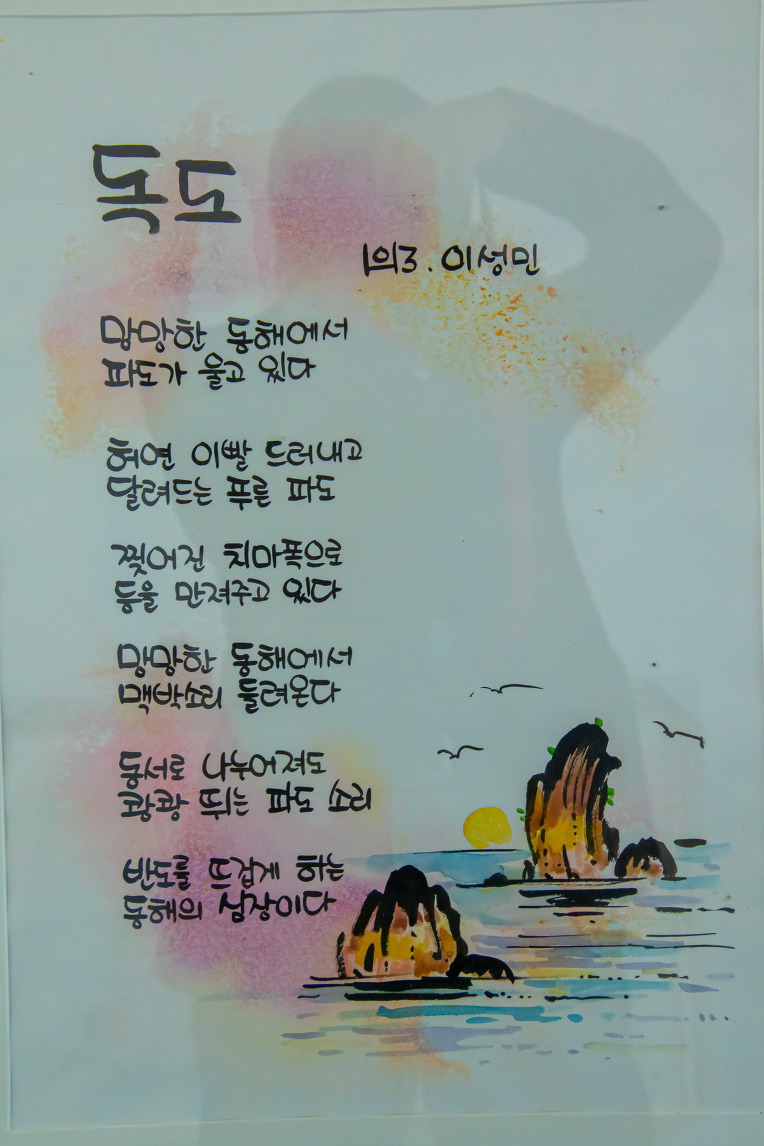 독도
1의3. 이성민
망망한 동해에서
파도가 울고 있다
허연 이빨 드러내고
달려드는 푸른 파도
찢어진 치마폭으로
등을 만져주고 있다
망망한 동해에서
맥박소리 들려온다
동서로 나누어져도
쾅쾅 뛰는 파도 소리
반도를 뜨겁게 하는
동해의 심장이다